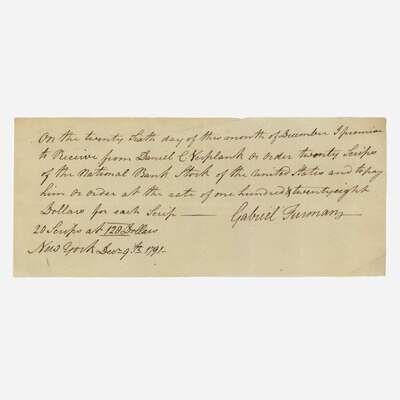 On the twenty Sixth day of this month of December I promise
to Receive from Daniel C Verplank or order twenty Scrips
of the National Bank Stock of the United States and to pay
him or order at the rate of one hundred & twenty eight
Dollars for each Scrip —
Gabriel Furman
20 Scrips at 128 Dollars
New York Decr 9th 1791